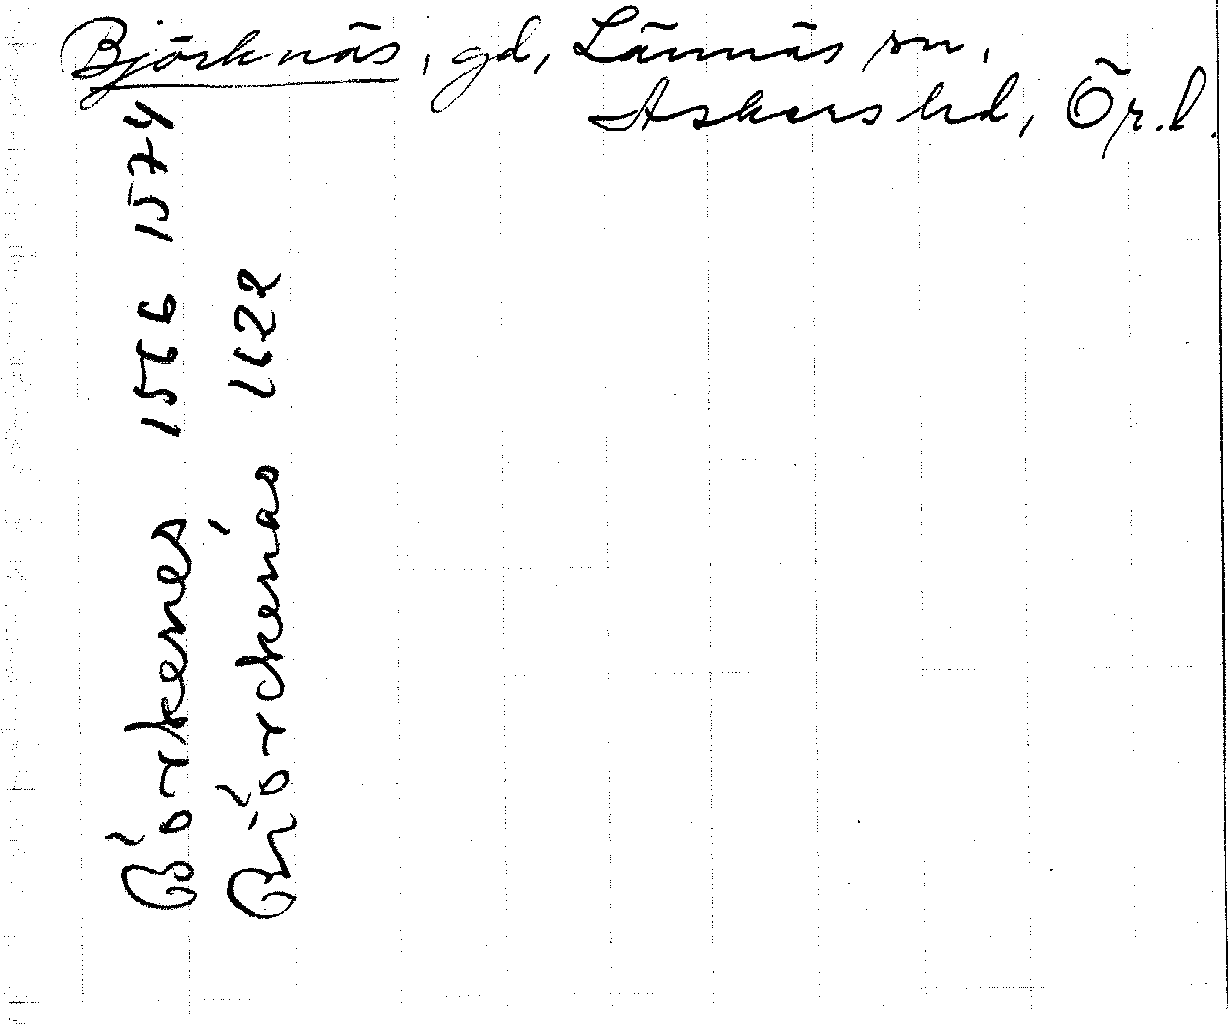 Björknäs, gd, Lännäs sn,
Askers hd, Ör.l.
Börkenes 1566 1574
Biörckenäs 1622